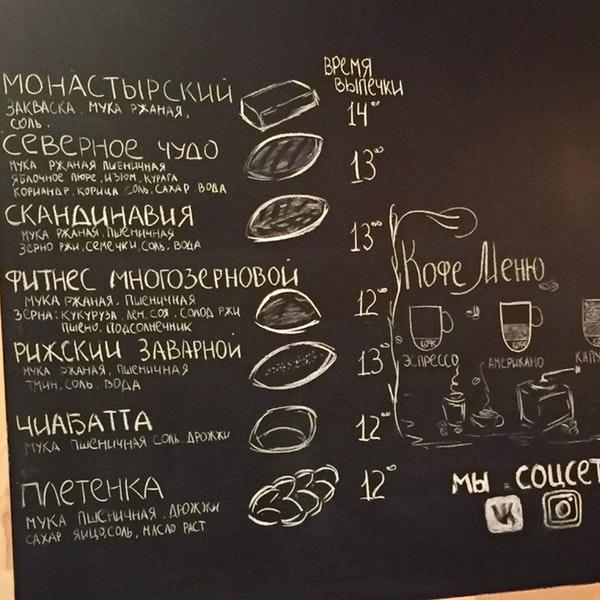 ВРЕМЯ
ВЫПЕЧКИ
МОНАСТЫРСКИЙ
ЗАКВАСКА. МУКА РЖАНАЯ,
СОЛЬ.
14⁰⁰
СЕВЕРНОЕ ЧУДО
МУКА РЖАНАЯ ПШЕНИЧНАЯ
ЯБЛОЧНОЕ ПЮРЕ, ИЗЮМ, КУРАГА
КОРИАНДР, КОРИЦА СОЛЬ, САХАР ВОДА
13⁰⁰
СКАНДИНАВИЯ
МУКА РЖАНАЯ, ПШЕНИЧНАЯ
ЗЕРНО РЖИ, СЕМЕЧКИ, СОЛЬ, ВОДА
13⁰⁰
ФИТНЕС МНОГОЗЕРНОВОЙ
МУКА РЖАНАЯ, ПШЕНИЧНАЯ
ЗЕРНА: КУКУРУЗА, ЛЕН, СОЯ, СОЛОД РЖИ
ПШЕНО, ПОДСОЛНЕЧНИК
12⁰⁰
РИЖСКИЙ ЗАВАРНОЙ
МУКА РЖАНАЯ, ПШЕНИЧНАЯ
ТМИН, СОЛЬ, ВОДА
13⁰⁰
ЧИАБАТТА
МУКА ПШЕНИЧНАЯ СОЛЬ ДРОЖЖИ
12⁰⁰
ПЛЕТЕНКА
МУКА ПШЕНИЧНАЯ, ДРОЖЖИ
САХАР, ЯЙЦО, СОЛЬ, МАСЛО РАСТ
12⁰⁰
Кофе Меню
ЭСПРЕССО АМЕРИКАНО КАПУ
МЫ В СОЦСЕТ